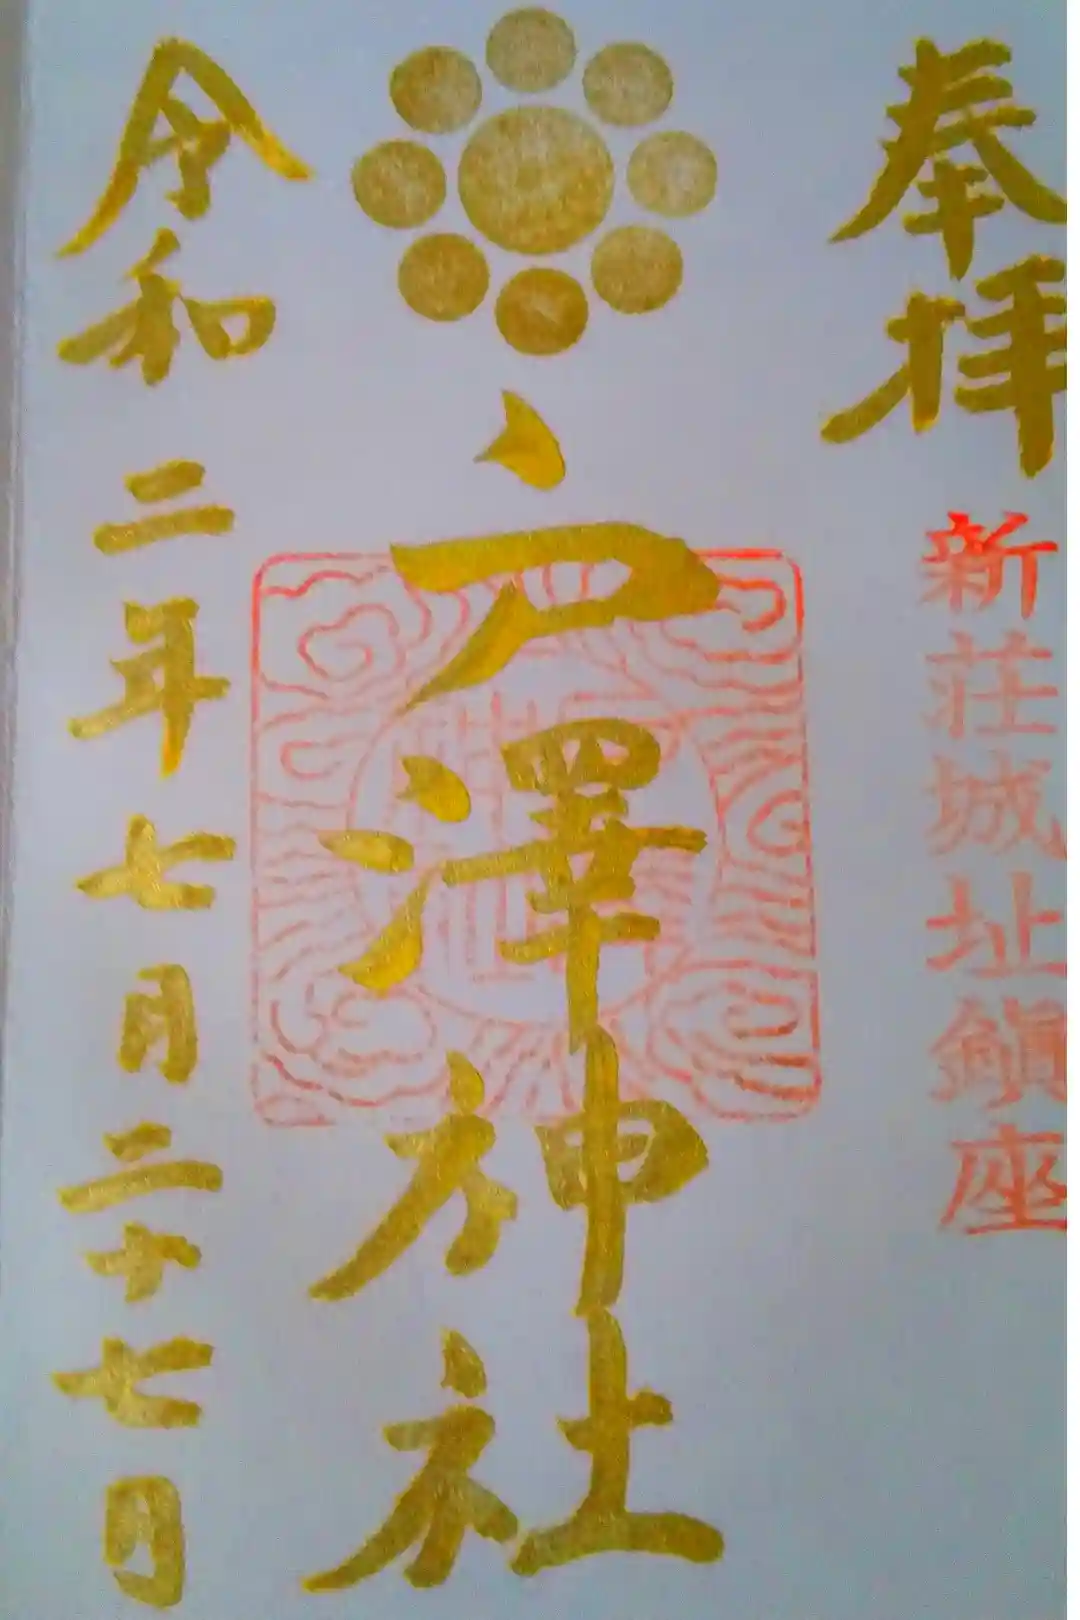 奉拝
新荘城址鎮座
戸澤神社
令和二年七月二十七日